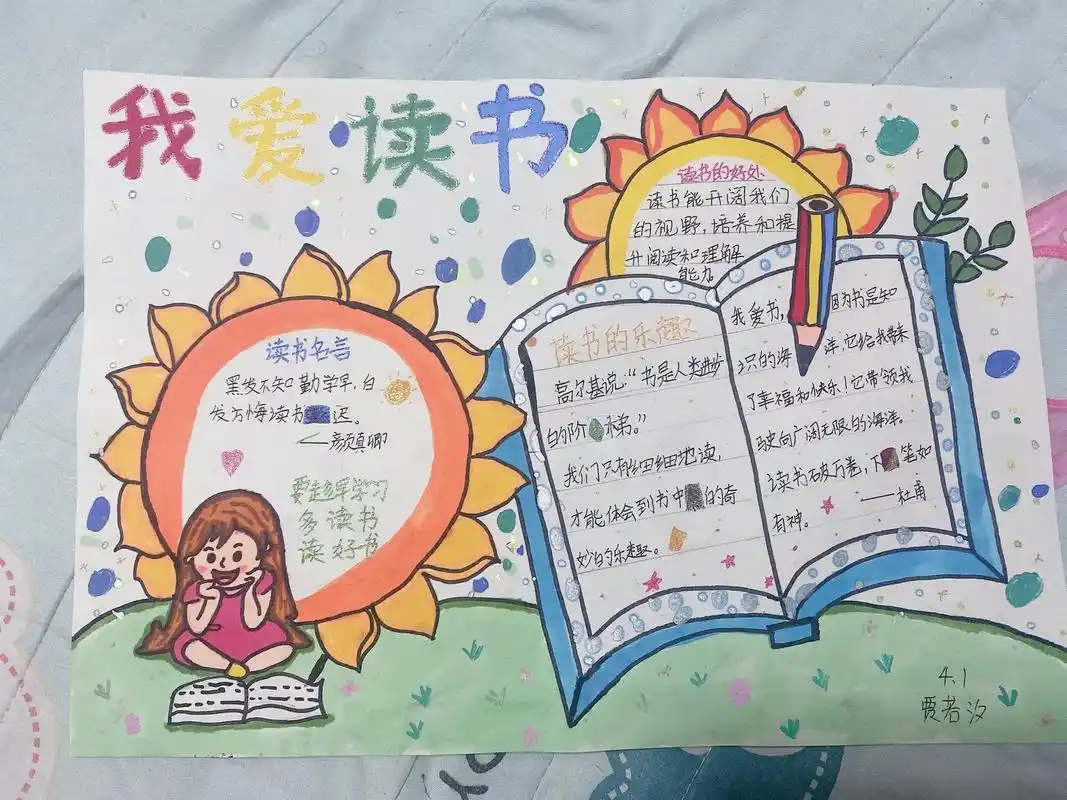 我爱读书
读书的好处
读书能开阔我们
的视野,培养和提
升阅读和理解
能力
读书名言
黑发不知勤学早,白
发方悔读书迟。
——颜真卿
要起早学习
多读书
读好书
读书的乐趣
高尔基说:“书是人类进步
的阶梯。”
我们只有细细地读,
才能体会到书中的奇
妙的乐趣。
我爱书,因为书是知
识的海洋,它给我带来
了幸福和快乐!它带领我
驶向广阔无限的海洋。
读书破万卷,下笔如
有神。——杜甫
4.1
贾若汐